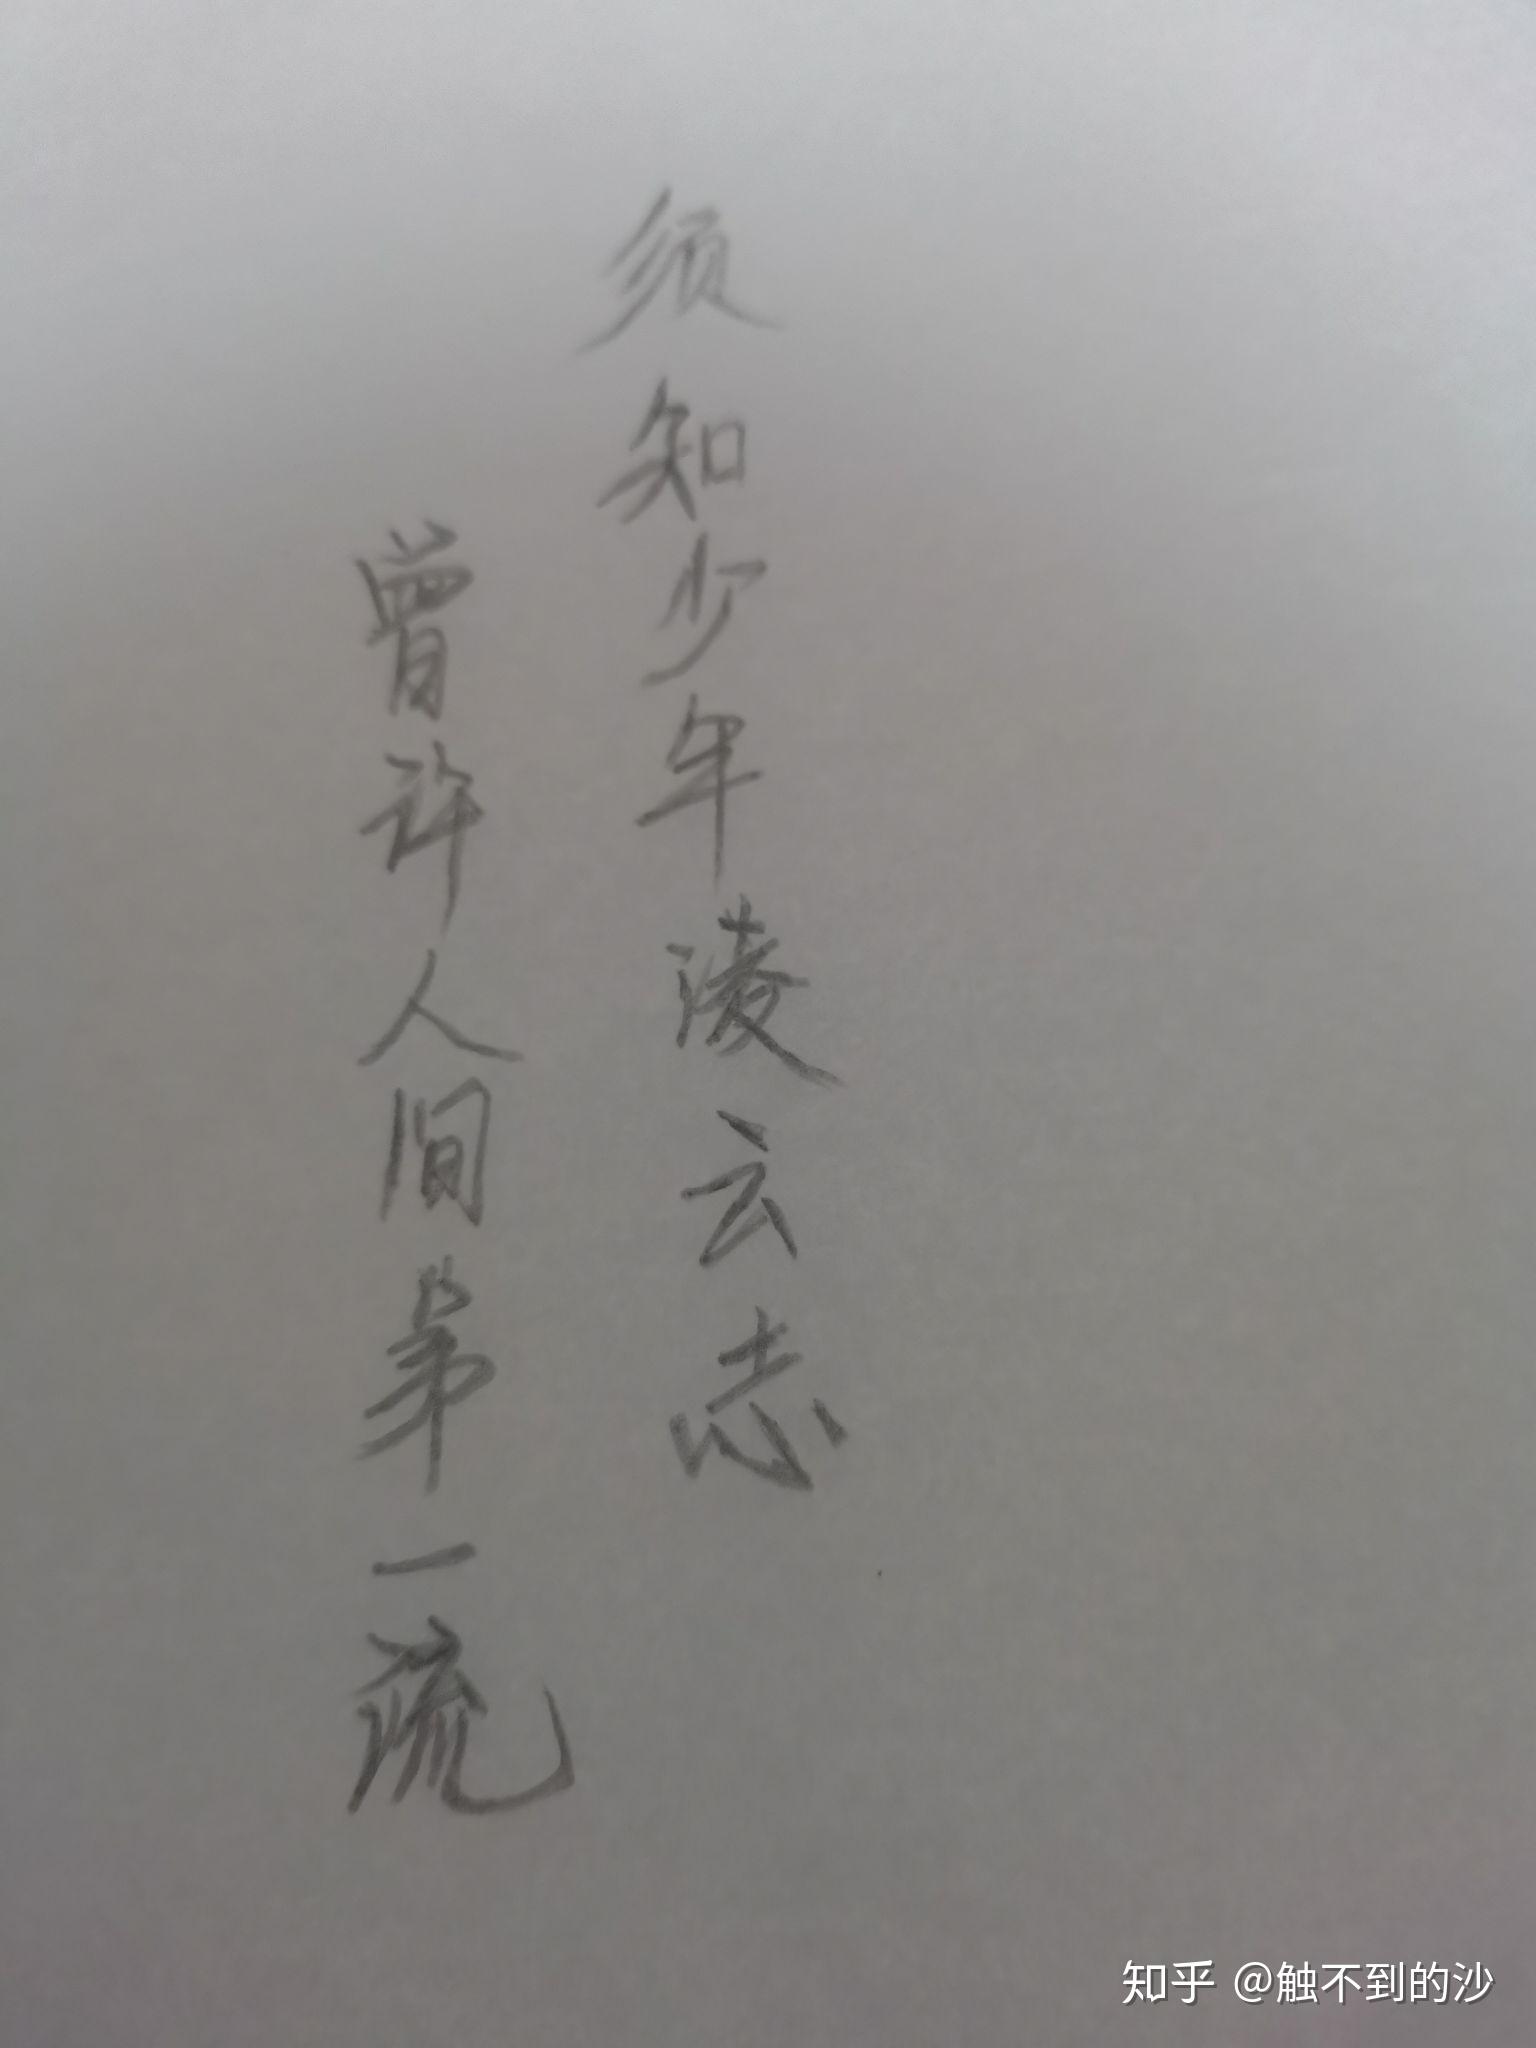 须知少年凌云志
曾许人间第一流
知乎 @触不到的沙